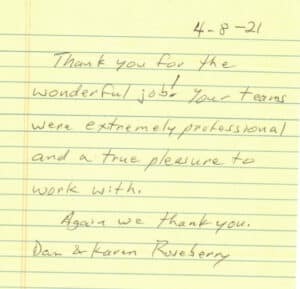 4-8-21
Thank you for the
wonderful job! Your teams
were extremely professional
and a true pleasure to
work with.
Again we thank you.
Dan & Karen Roseberry